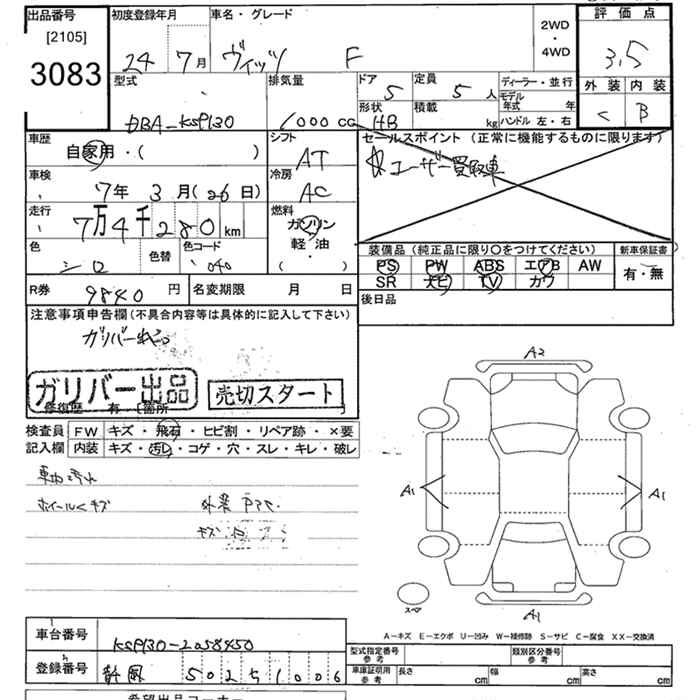 出品番号 初度登録年月 車名・グレード 評価点
[2105] 24 7月 ヴィッツ F 2WD・4WD 3.5
3083 外装 内装
型式 排気量 ドア 5 定員 5人 ディーラー・並行 C B
DBA-KSP130 1000 cc 形状 HB 積載 kg モデル年式 年 ハンドル 左・右
車歴 シフト セールスポイント(正常に機能するものに限ります)
自家用・( ) AT ユーザー買取車
車検 冷房
7年 3月(26日) AC
走行 燃料
7万4千280km ガソリン
軽・油
・( )
色 シロ 色替 色コード 040 装備品(純正品に限り○をつけてください) 新車保証書
PS PW ABS エアB AW 有・無
SR ナビ TV カワ
R券 9840円 名変期限 月 日 後日品
注意事項申告欄(不具合内容等は具体的に記入して下さい)
ガリバー出品 売切スタート
修復歴 有 [箇所 ]
検査員 FW キズ・飛石・ヒビ割・リペア跡・×要
記入欄 内装 キズ・汚レ・コゲ・穴・スレ・キレ・破レ
ホイールキズ 外装
キズ
A2
A1 A1
スペア A1
A-キズ E-エクボ U-凹み W-補修跡 S-サビ C-腐食 XX-交換済
車台番号 KSP130-2058450
型式指定番号 参考 類別区分番号 参考
登録番号 静岡 502 5 1006
車庫証明用 参考 長さ cm 幅 cm 高さ cm
希望出品コーナー